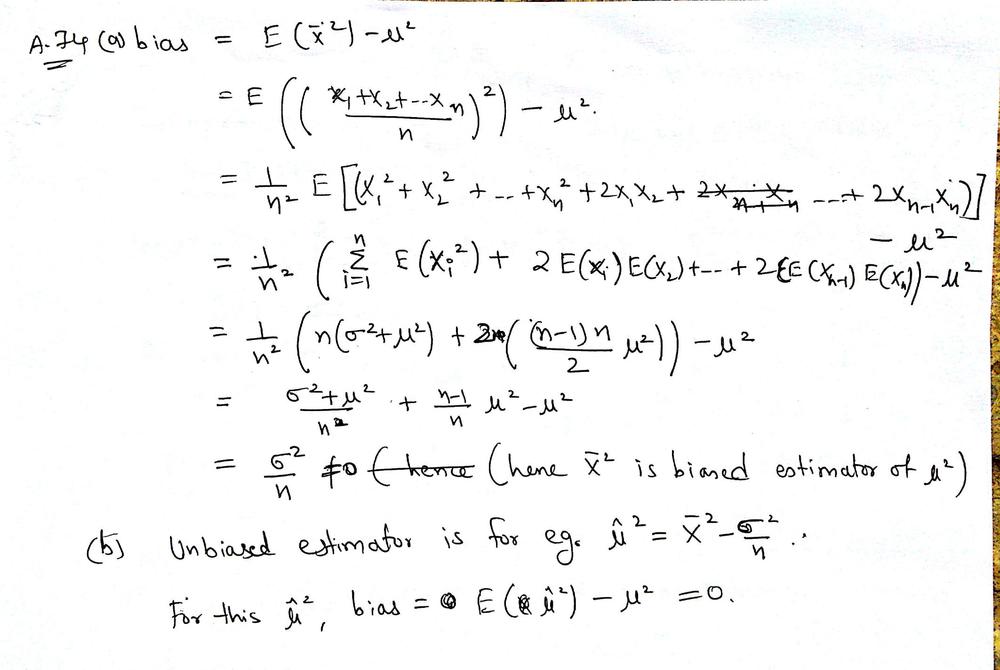 A.74 (a) bias = E(x̄²) - μ²
= E((X₁+X₂+--Xₙ / n)²) - μ².
= 1/n² E[(X₁² + X₂² + -- +Xₙ² + 2X₁X₂ + ---+ 2Xₙ₋₁Xₙ)]
- μ²
= 1/n² (Σᵢ₌₁ⁿ E(Xᵢ²) + 2E(X₁)E(X₂)+--- + 2(E(Xₙ₋₁) E(Xₙ)) - μ²
= 1/n² (n(σ²+μ²) + 2((n-1)n / 2 μ²)) - μ²
= σ²+μ² / n + n-1 / n μ² - μ²
= σ² / n ≠0 (hene X̄² is biased estimator of μ²)
(b) Unbiased estimator is for eg. μ̂² = X̄² - σ²/n .
For this μ̂², bias = E(μ̂²) - μ² = 0.